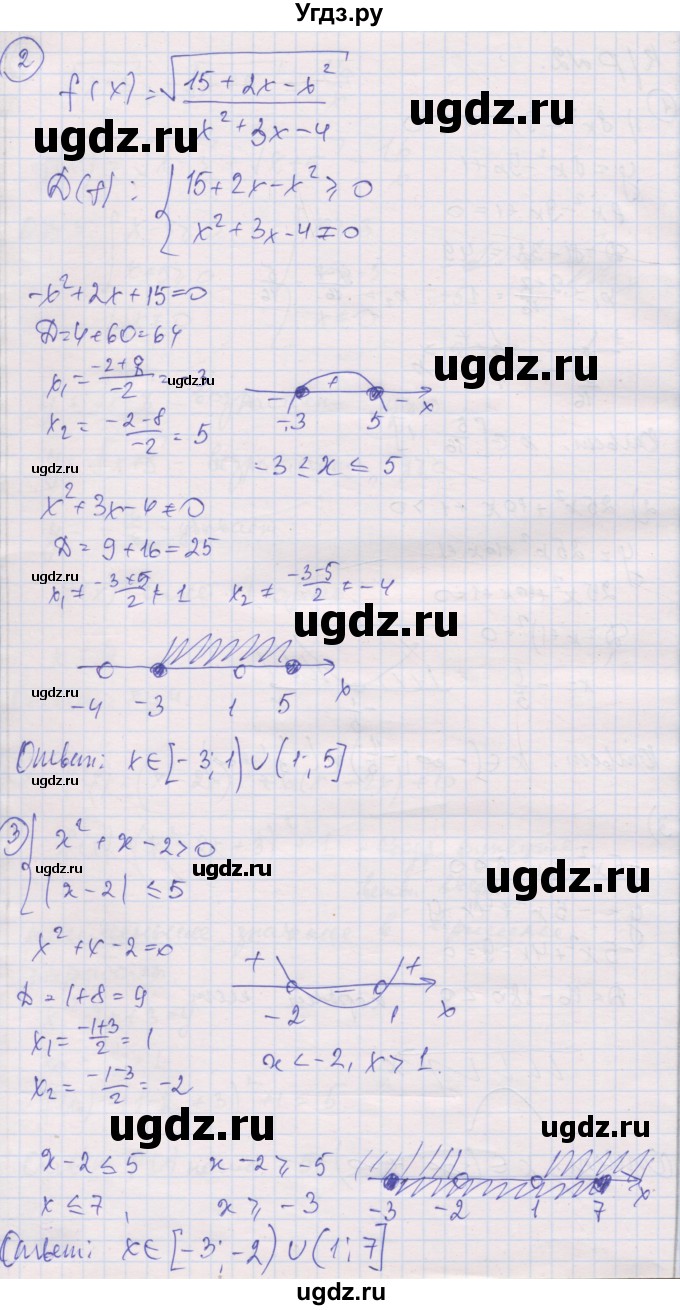 Угдз.ру
2
f(x) = √((15 + 2x - x²)/(x² + 3x - 4))
ugdz.ru ugdz.ru
D(f): { 15 + 2x - x² ≥ 0
x² + 3x - 4 ≠ 0
-x² + 2x + 15 = 0
D = 4 + 60 = 64
ugdz.ru
x₁ = (-2+8)/(-2) = -3
ugdz.ru
- + - x
-3 5
x₂ = (-2-8)/(-2) = 5
ugdz.ru
-3 ≤ x ≤ 5
x² + 3x - 4 ≠ 0
D = 9 + 16 = 25
ugdz.ru
x₁ ≠ (-3+5)/2 ≠ 1 x₂ ≠ (-3-5)/2 ≠ -4
ugdz.ru
ugdz.ru
-4 -3 1 5 x
Ответ: x ∈ [-3; 1) ∪ (1; 5]
ugdz.ru
3 { x² + x - 2 > 0
ugdz.ru ugdz.ru ugdz.ru
|x - 2| ≤ 5
x² + x - 2 = 0
+ - + x
-2 1
D = 1 + 8 = 9
x₁ = (-1+3)/2 = 1
x < -2, x > 1.
x₂ = (-1-3)/2 = -2
ugdz.ru ugdz.ru
x - 2 ≤ 5 x - 2 ≥ -5
x ≤ 7, x ≥ -3
-3 -2 1 7 x
Ответ: x ∈ [-3; -2) ∪ (1; 7]
ugdz.ru